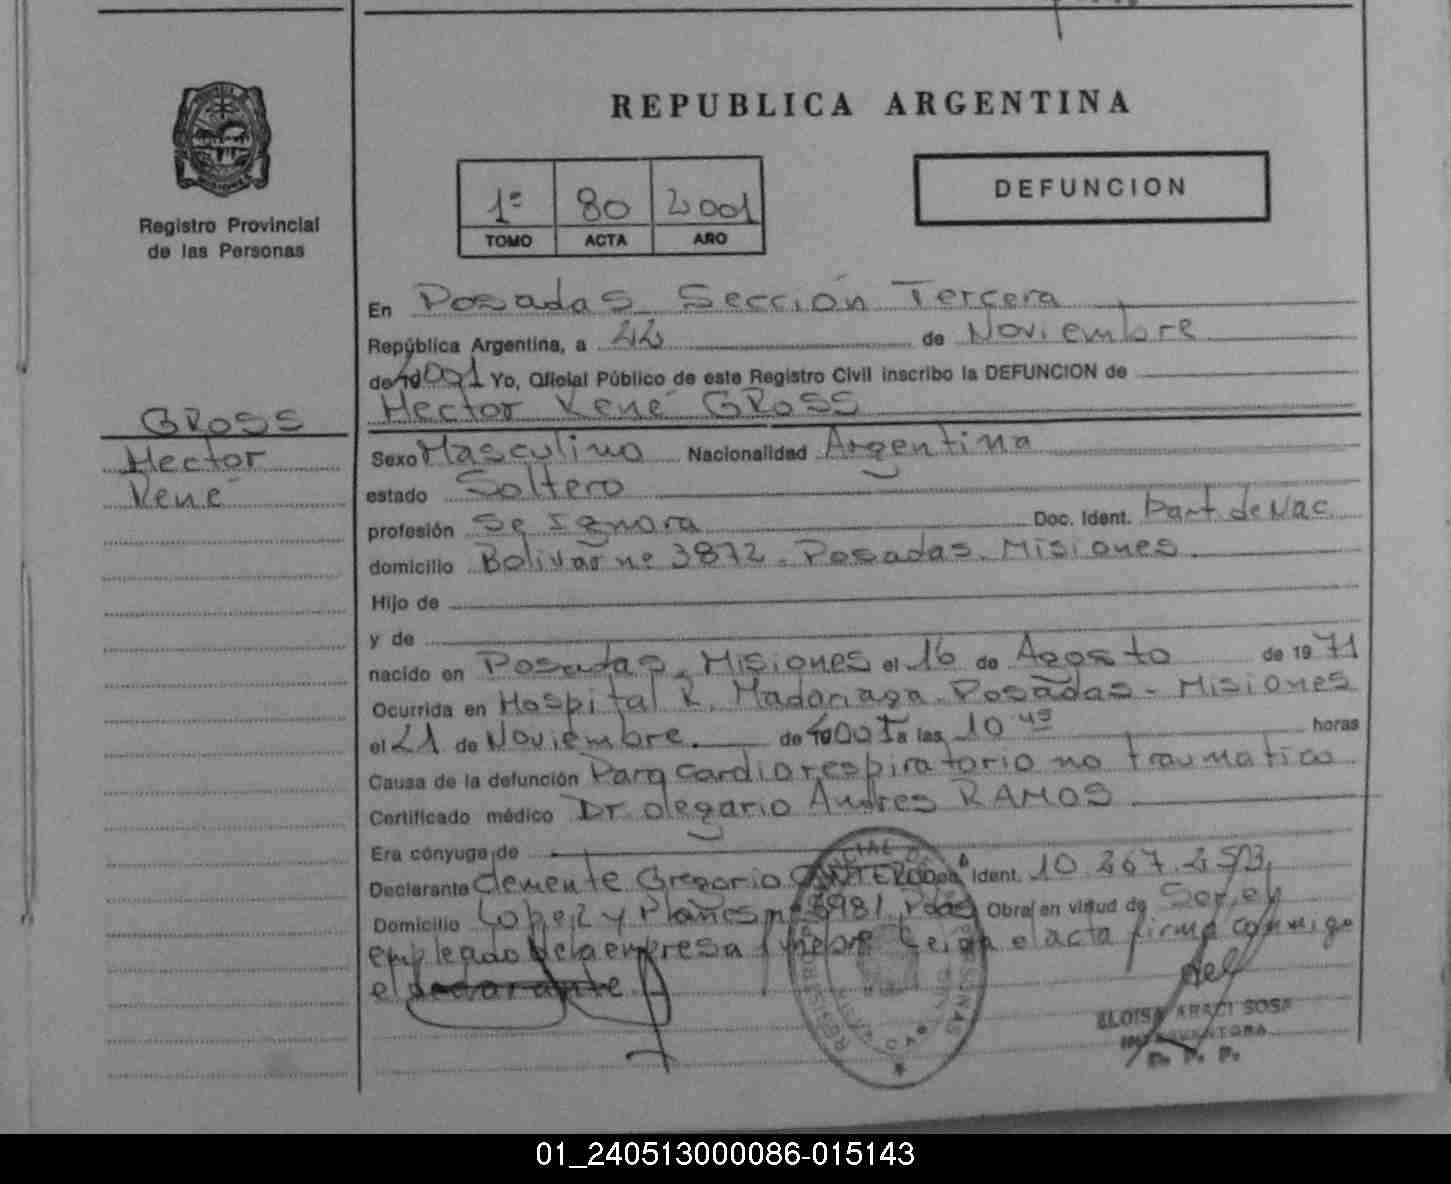 REPUBLICA ARGENTINA
Registro Provincial
de las Personas
1º 80 2001
TOMO ACTA AÑO
DEFUNCION
GROSS
Hector
René
En Posadas Sección Tercera
República Argentina, a 22 de Noviembre
de 2001 Yo, Oficial Público de este Registro Civil inscribo la DEFUNCION de
Hector René GROSS
Sexo Masculino Nacionalidad Argentina
estado Soltero
profesión Se Ignora Doc. Ident. Part de Nac
domicilio Bolivar nº 3872 - Posadas - Misiones
Hijo de
y de
nacido en Posadas - Misiones el 16 de Agosto de 1971
Ocurrida en Hospital R. Madariaga - Posadas - Misiones
el 21 de Noviembre de 2001 a las 10 45 horas
Causa de la defunción Paro cardiorespiratorio no traumatico
Certificado médico Dr. Olegario Andres RAMOS
Era cónyuge de
Declarante Clemente Gregorio Ident. 10.267.
Domicilio Lopez y Planes nº 3981 Pdas Obra en virtud de Ser el
empleado de la empresa funebre Leida el acta firma conmigo
el declarante
REGISTRO PROVINCIAL DE LAS PERSONAS
ELOISA ARACI SOSA
R. P. P.
01_240513000086-015143